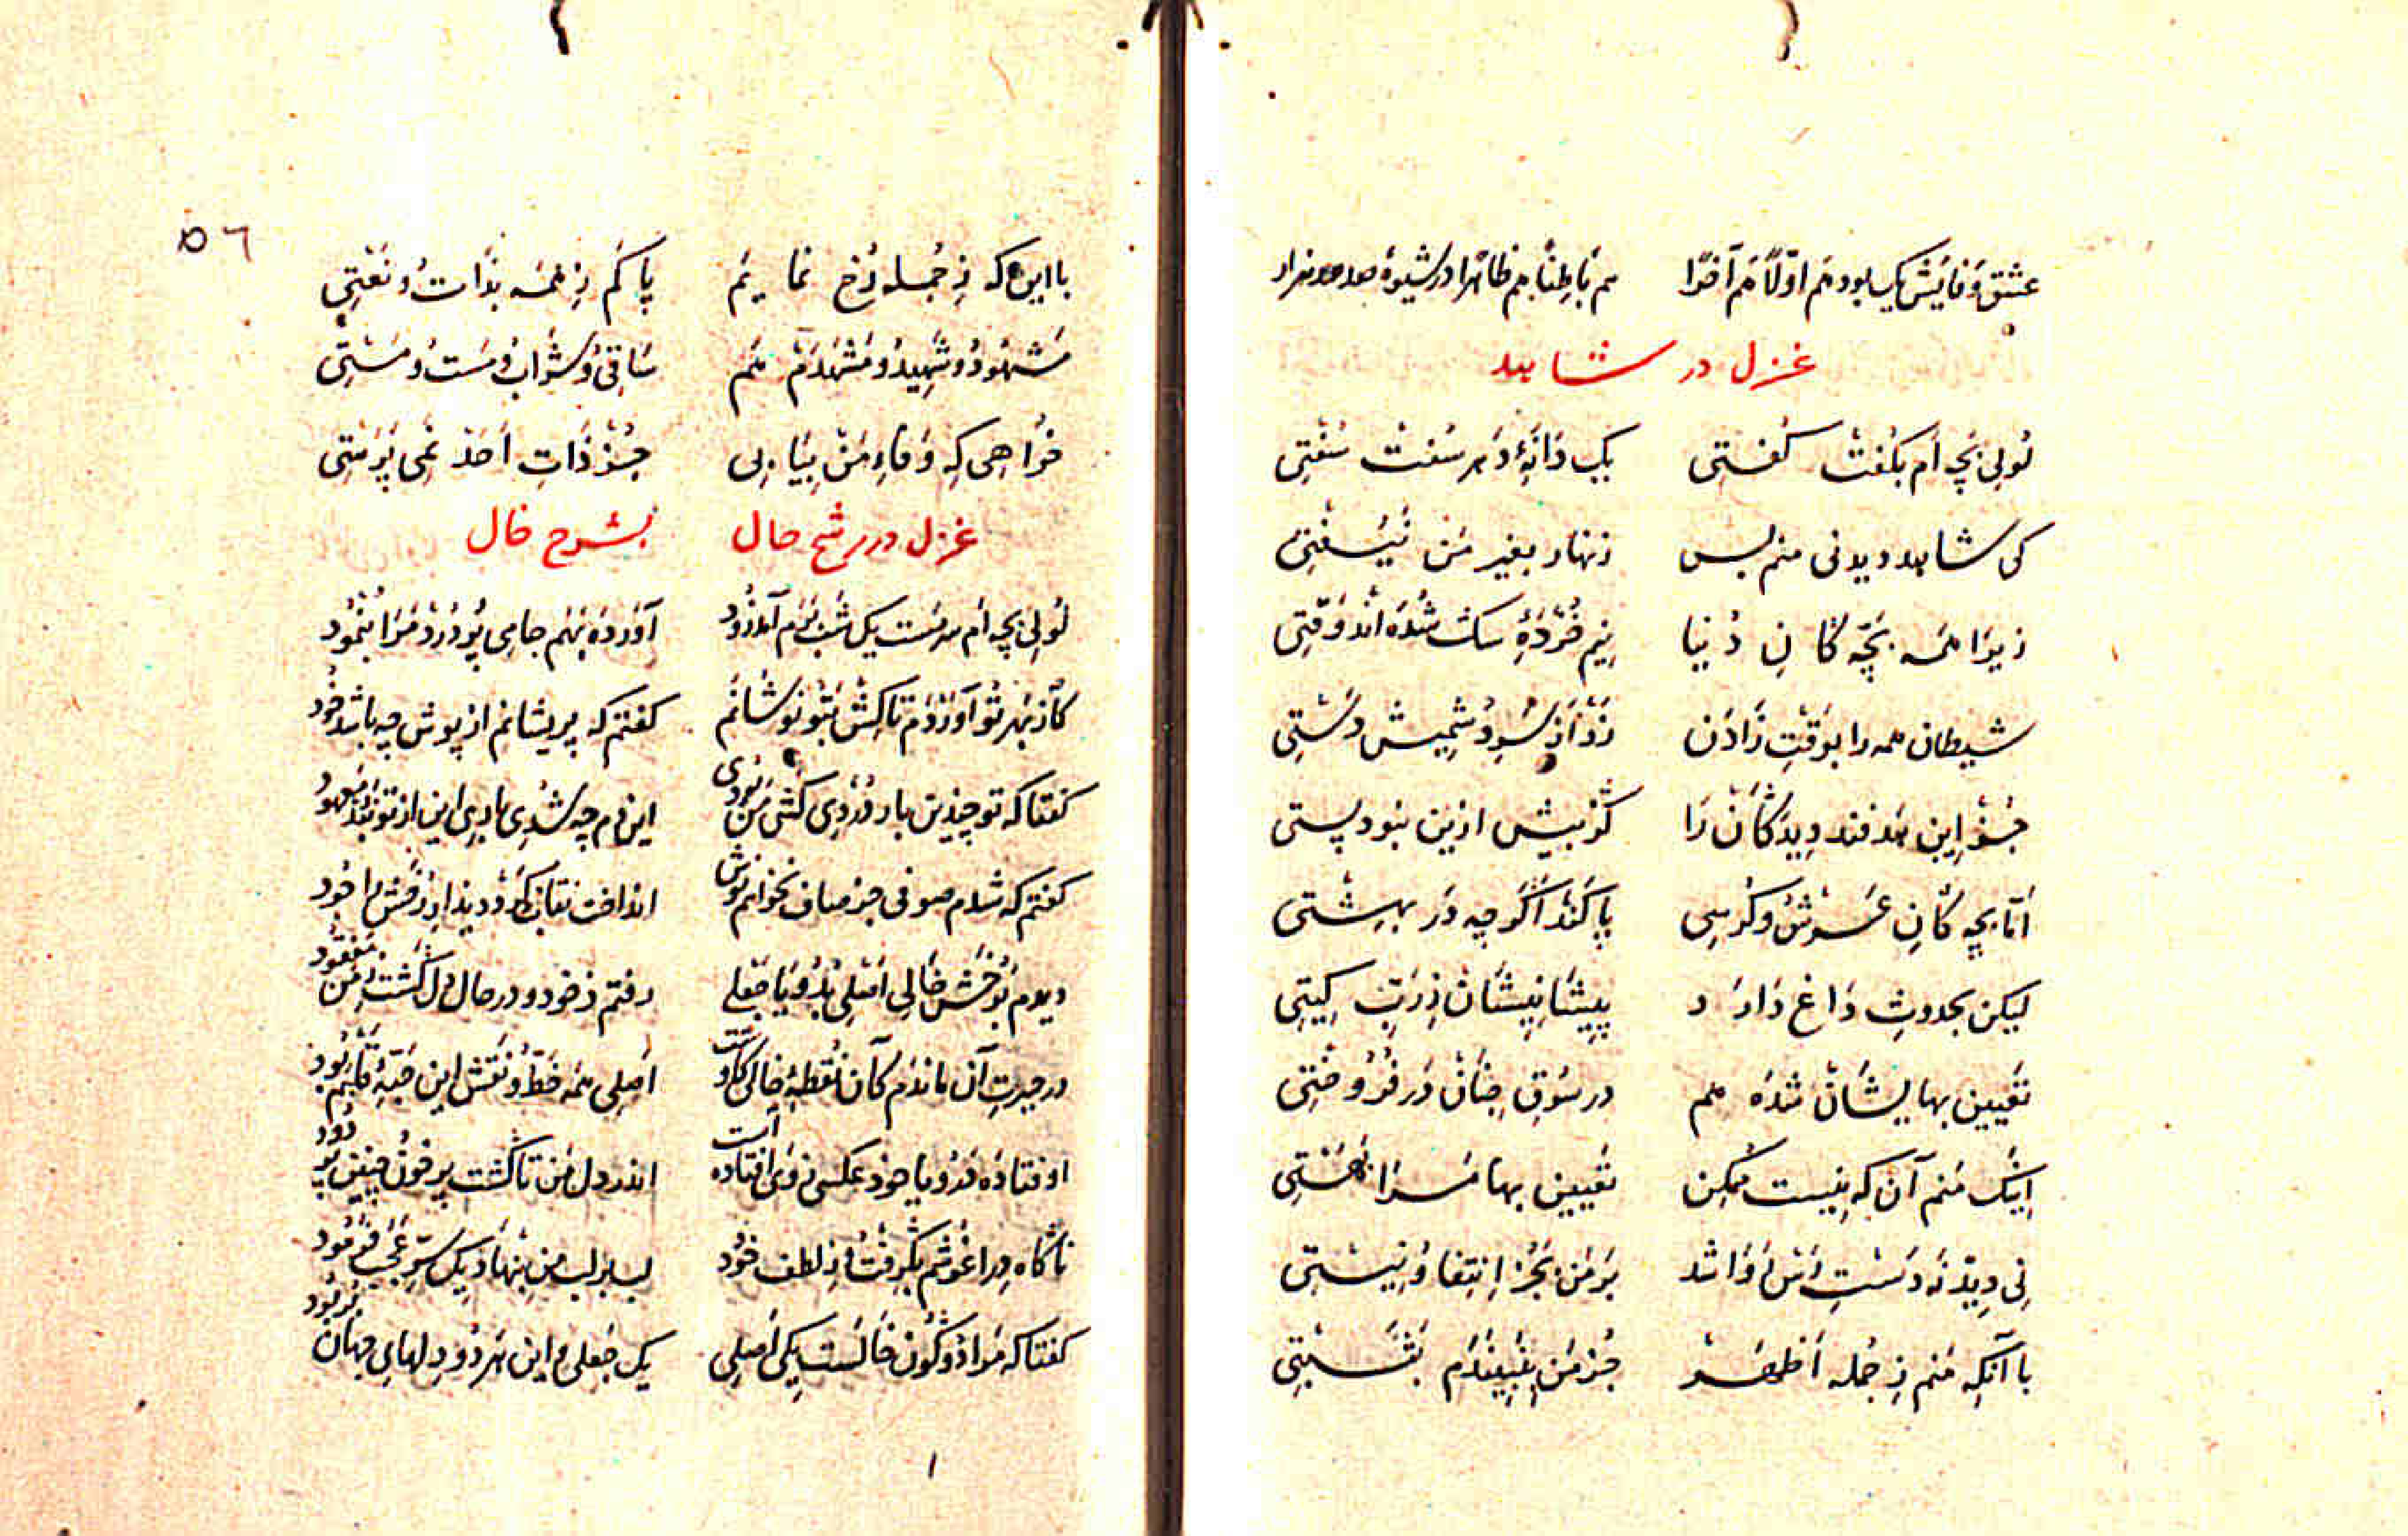 عشق وفایش یک بود هم اولا هم آخرا هم باطنا هم ظاهرا در شیوهٔ صد هزار
غزل در شاهد
لولی بچه ام بگفت گفتی یک دانهٔ در سفت سفتی
کی شاهد دیدنی منم بس زنهار بغیر من
زیرا همه بچه کان دنیا نیم خردهٔ سگ شده اند وقتی
شیطان همه را بوقت زادن زد از دستی
جز این دیدکان را کز بیش ازین نبود پستی
اما بچه کان عرش و کرسی پاکند اگرچه در بهشتی
لیکن بحدوث داغ دارند پیشانیشان ز رب گیتی
تعیین بها یشان شده هم در سوق جنان در فروختی
اینک منم آن که نیست ممکن تعیین بها مرا
نی دید نه دست رس وا شد بر من بجز انتفا و نیستی
با آنکه منم ز جمله اظهر جز من
با این که ز جمله رخ نمایم پاکم ز همه بذات و نعتی
مشهود و شهید و مشهدم هم ساقی و شراب و مست و مستی
خواهی که وفاء من بیابی جز ذات احد نمی پرستی
غزل در شرح حال بشرح خال
لولی بچه ام سرمست یک شب برم آمد زود آورده بهم جامی پر درد مرا بنمود
کاز بهر تو آوردم تاکش بتو نوشانم کفتم که پریشانم از پوش چه باشد خود
کفتا که تو چندین بار دردی کش من بودی این دم چه شدی این از تو نبد معهود
کفتم که شدم صوفی جز صاف نخواهم نوش انداخت نقاب خود
دیدم برخش خالی اصلی بد و یا جعلی رفتم ز خود و در حال دل کشت ز من مفقود
در حیرت آن ماندم کان نقطهٔ خالی اصلی همه خط و نقش این حبهٔ
اوفتاده فرو یا خود عکسی ز وی افتاده است اندر دل من تا کشت پر خون
ناکاه در اغوشم بکرفت ز لطف خود لب بر لب من بنهاد یک سر عجب فرمود
کفتا که مرا دو گون خالست یکی اصلی یک جعلی و این هر دو دلهای جهان بربود
۵٦